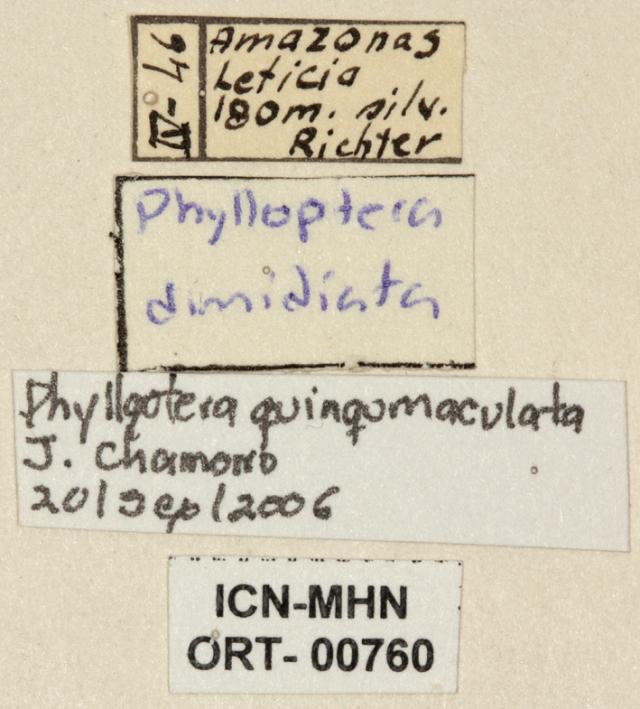 IV-46
Amazonas
Leticia
180m. silv.
Richter
Phylloptera
dimidiata
Phyllqotera quinqumaculata
J. Chamorro
20/Sep/2006
ICN-MHN
ORT-00760